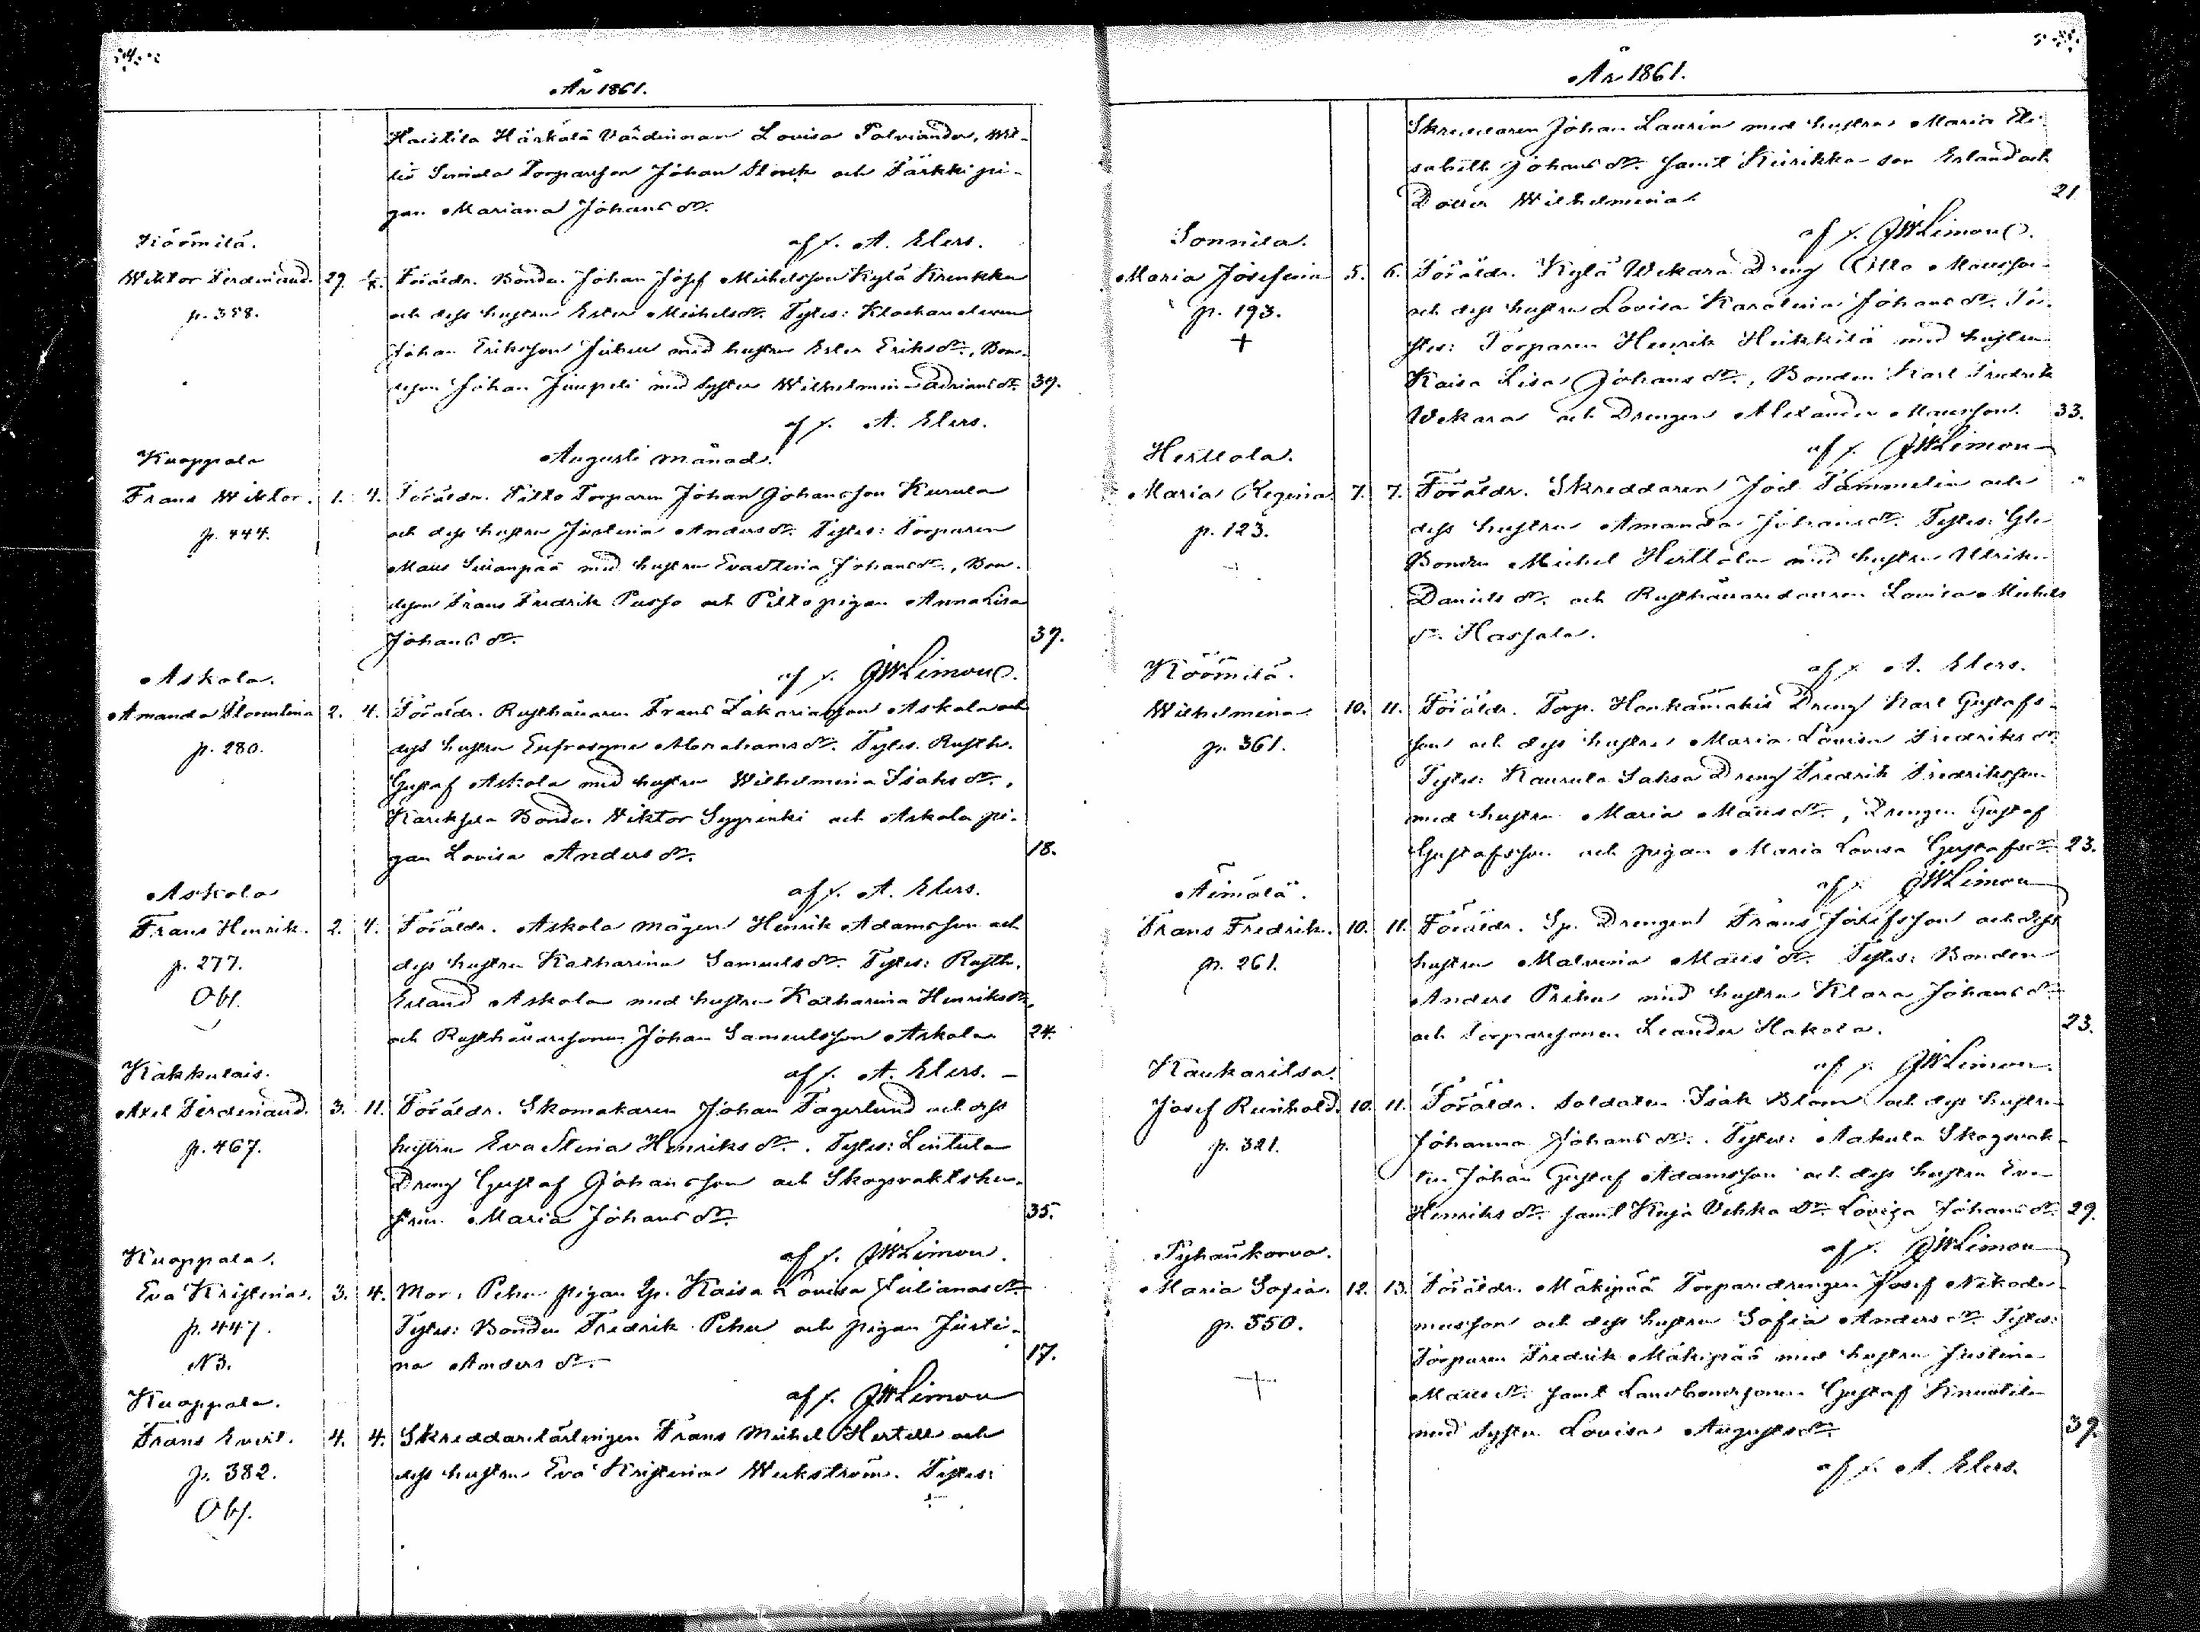 År 1861.
Haistila Härkälä Värdinnan Lovisa
Torpareson Johan Stork och Särkki pi-
gan Mariana Johansdr.
af f. A. Elers.
Köömilä.
Wiktor Ferdinand. 29. Föräldr. Bonden Johan Josef Michelsson Kylä Krenkku
p. 358. och dess hustru Ester Michelsdr. Testes: Klockareleven
Johan Eriksson Juhen med hustru Ester Eriksdr., Bon-
deson Johan Juupeli med syster Wilhelmina Adriansdr. 39.
af f. A. Elers.
Augusti månad.
Kuoppala
Frans Wiktor. 1. 4. Föräldr. Pitto Torparen Johan Johansson Kurula
p. 444. och dess hustru Justina Andersdr. Testes: Torparen
Matts med hustru Eva Stina Johansdr., Bon-
deson Frans Fredrik Pusso och Pitto pigan Anna Lisa
Johansdr. 39.
af f. JWLimon.
Askola.
Amanda Florentina 2. 4. Föräldr. Rusthållaren Frans Zakariasson Askola och
p. 280. dess hustru Eufrosyne Abrahamsdr. Testes. Rusth.
Gustaf Askola med hustru Wilhelmina Isaksdr.,
Kareksela Bonden Wiktor Syyrinki och Askola pi-
gan Lovisa Andersdr. 18.
af f. A. Elers.
Askola
Frans Henrik. 2. 4. Föräldr. Askola mågen Henrik Adamsson och
p. 277. dess hustru Katharina Samuelsdr. Testes: Rusth.
Obs. Erland Askola med hustru Katharina Henriksdr.
och Rusthållaresonen Johan Samuelsson Askola 24.
af f. A. Elers. –
Kakkulais.
Axel Ferdinand. 3. 11. Föräldr. Skomakaren Johan Fagerlund och dess
p. 467. hustru Eva Stina Henriksdr. Testes: Lintula
Dreng Gustaf Johansson och Skogsvaktshu-
strun Maria Johansdr. 35.
af f. JWLimon.
Kuoppala.
Eva Kristina. 3. 4. Mor. Pehu pigan Yp. Kaisa Lovisa Julianasdr.
p. 447. Testes: Bonden Fredrik Pehu och pigan Justi-
N3. na Andersdr. – 17.
af f. JWLimon
Kuoppala.
Frans Evert. 4. 4. Skreddarelärlingen Frans Michel Hertell och
p. 382. dess hustru Eva Kristina Werkström. Testes:
Obs.
År 1861.
Skreddaren Johan Laurin med hustru Maria Eli-
sabeth Johansdr. samt Kiirikka son Erland och
Dotter Wilhelmina. 21
af f. JWLimon.
Sonnila.
Maria Josefina 5. 6. Föräldr. Kylä Wekara Dreng Otto Mattsson
p. 193. och dess hustru Lovisa Karolina Johansdr. Te-
+ stes: Torparen Henrik Heikkilä med hustru
Kaisa Lisa Johansdr., Bonden Karl Fredrik
Wekara och Drengen Alexander Mattsson. 33.
af f. JWLimon
Herttola.
Maria Regina 7. 7. Föräldr. Skreddaren Joel Tammelin och
p. 123. dess hustru Amanda Johansdr. Testes: Gle
Bonden Michel Herttola med hustru Ulrika
Danielsdr. och Rusthållaredottren Lovisa Michels
dr. Hassala.
af f. A. Elers.
Köömilä.
Wilhelmina 10. 11. Föräldr. Torp. Honkamäkis Dreng Karl Gustafs-
p. 361. son och dess hustru Maria Lovisa Fredriksdr.
Testes: Kaurula Saksa Dreng Fredrik Fredriksson
med hustru Maria Mattsdr., Drengen Gustaf
Gustafsson och pigan Maria Lovisa Gustafsdr. 23.
af f. JWLimon
Äimälä.
Frans Fredrik. 10. 11. Föräldr. Sp. Drengen Frans Josefsson och dess
p. 261. hustru Malvina Mattsdr. Testes: Bonden
Anders Prihu med hustru Klara Johansdr.
och Torparesonen Leander Hakola. 23.
af f. JWLimon.
Kaukaritsa.
Josef Reinhold. 10. 11. Föräldr. Soldaten Isak Blom och dess hustru
p. 321. Johanna Johansdr. Testes: Aakula Skogsvak-
ten Johan Gustaf Adamsson och dess hustru Eva
Henriksdr. samt Kuja Uckka dr. Loviza Johansdr. 29.
af f. JWLimon
Pyhänkorva.
Maria Sofia. 12. 13. Föräldr. Mäkipää Torparedrengen Josef Nikode-
p. 550. musson och dess hustru Sofia Andersdr. Testes:
+ Torparen Fredrik Mäkipää med hustru Justina
Mattsdr. samt Landbondesonen Gustaf Knuutila
med syster Lovisa Augustsdr. 39.
af f. A. Elers.